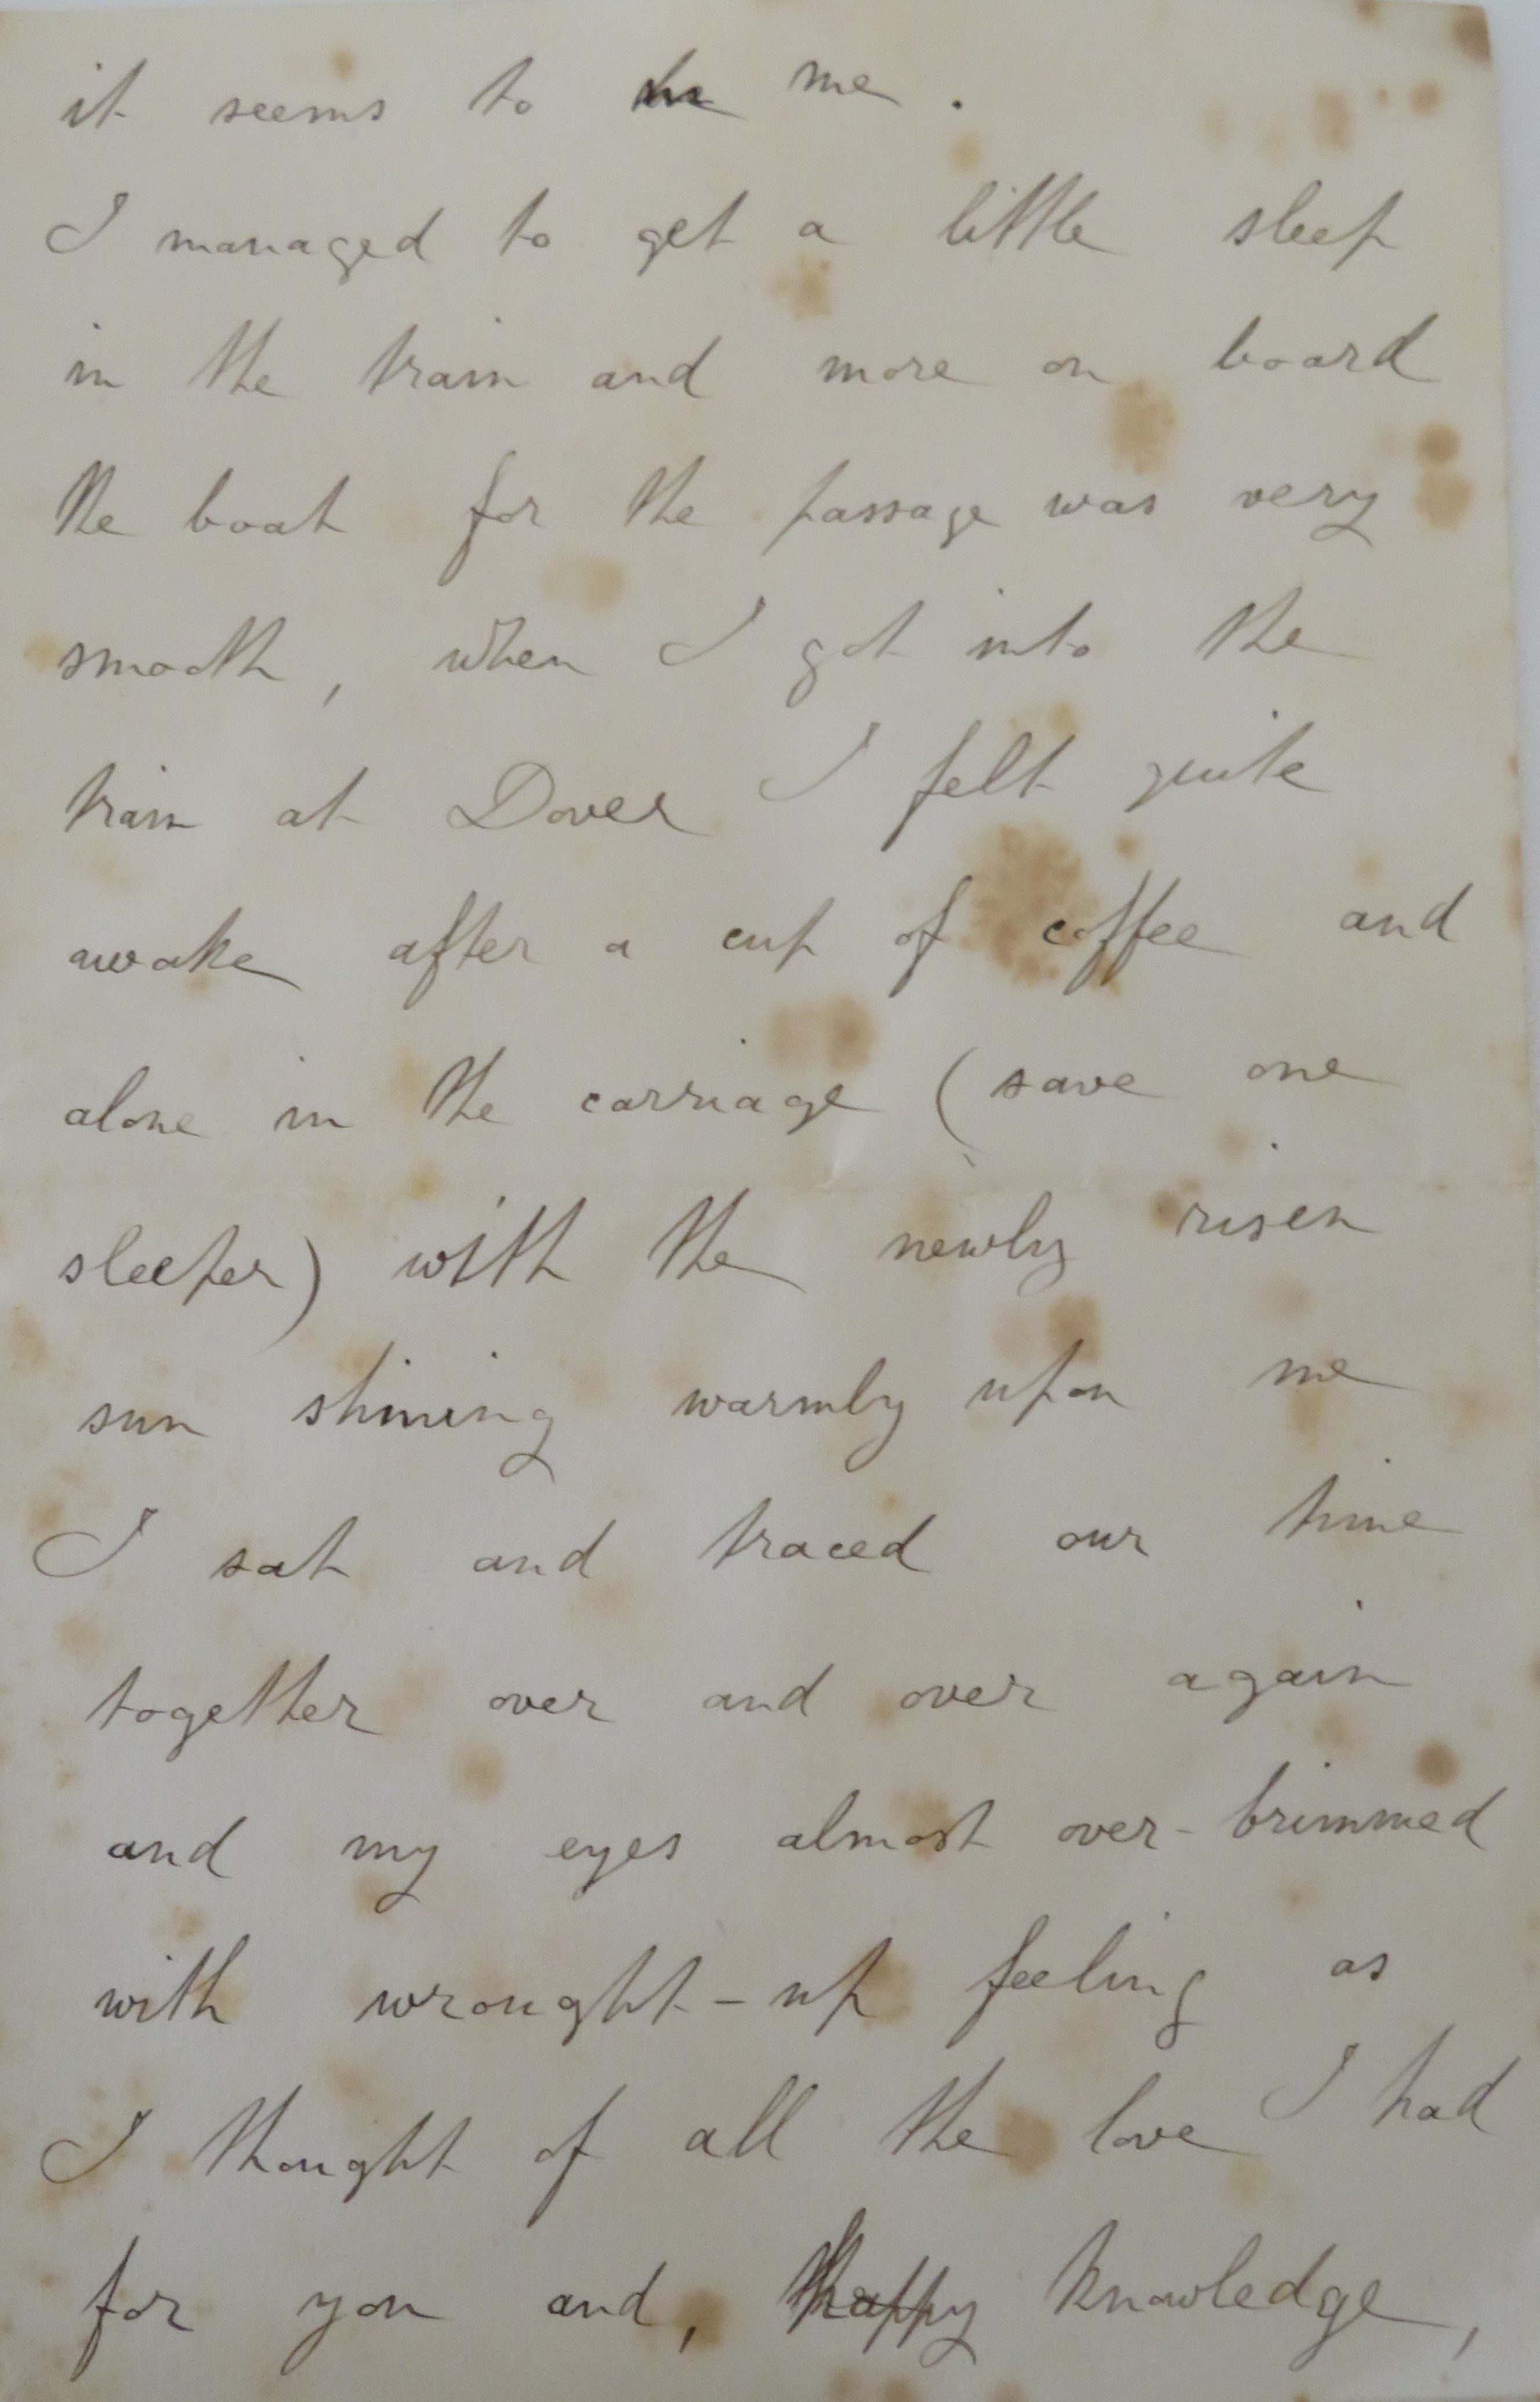 it seems to me .
I managed to get a little sleep
in the train and more on board
the boat for the passage was very
smooth , when I got into the
train at Dover I felt quite
awake after a cup of coffee and
alone in the carriage ( save one
sleeper ) with the newly risen
sun shining warmly upon me
I sat and traced our time
together over and over again
and my eyes almost over-brimmed
with wrought-up feeling as
I thought of all the love I had
for you and , happy knowledge ,